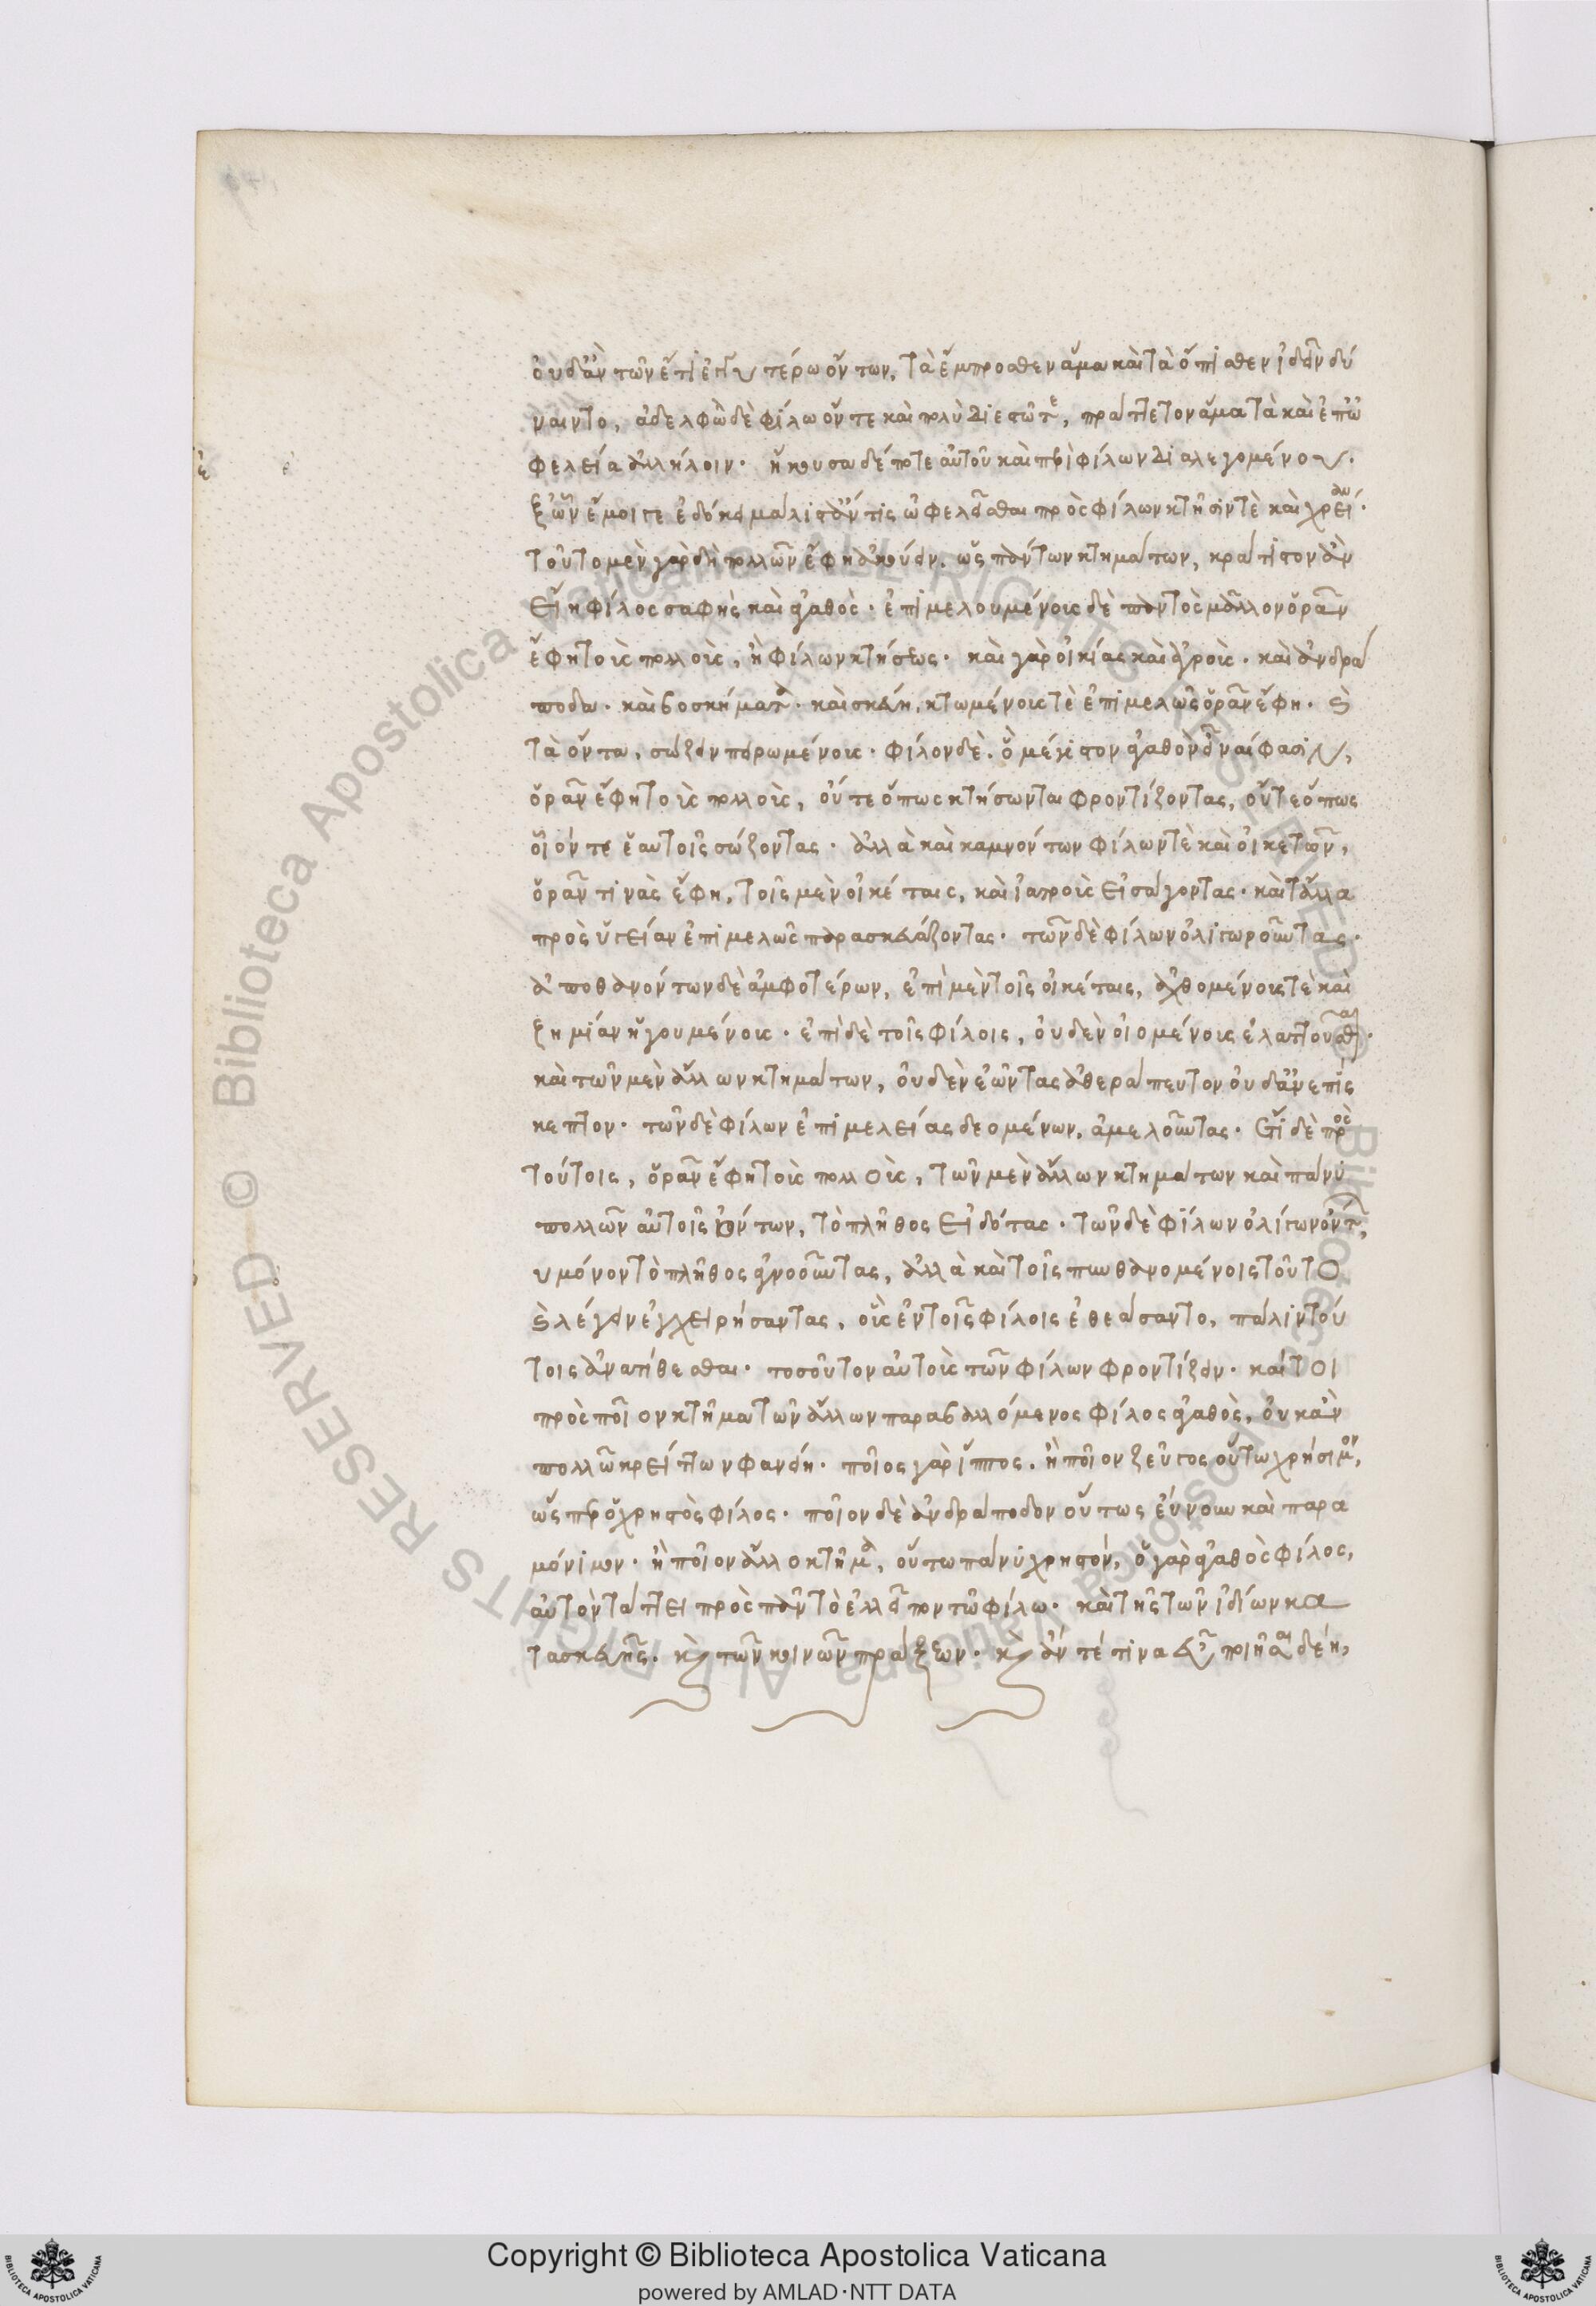 οὐδἂν τῶν ἔτι ἐγγυτέρω ὄντων, τὰ ἔμπροσθεν ἅμα καὶ τὰ ὄπισθεν ἰδεῖν δύ
ναιντο, ἀδελφὼ δὲ φίλω ὄντε καὶ πολὺ διεστῶτε, πράττετον ἅμα τὰ καὶ ἐπ' ὠ
φελεία ἀλλήλοιν. ἤκουσα δέ ποτε αὐτοῦ καὶ περὶ φίλων διαλεγομένου.
ἐξ ὧν ἔμοιγε ἐδόκει μάλιστ' ἄν τις ὠφελεῖσθαι πρὸς φίλων κτῆσίν τὲ καὶ χρείαν.
τοῦτο μὲν γὰρ δὴ πολλῶν ἔφη ἀκούειν. ὡς πάντων κτημάτων, κράτιστον ἂν
εἴη φίλος σαφὴς καὶ ἀγαθός. ἐπιμελουμένους δὲ παντὸς μᾶλλον ὁρᾶν
ἔφη τοὺς πολλοὺς, ἢ φίλων κτήσεως. καὶ γὰρ οἰκίας καὶ ἀγροὺς. καὶ ἀνδρά
ποδα. καὶ βοσκήματα. καὶ σκεύη, κτωμένους τὲ ἐπιμελῶς ὁρᾶν ἔφη. καὶ
τὰ ὄντα, σώζειν πειρωμένους. φίλον δὲ. ὃ μέγιστον ἀγαθὸν εἶναί φασιν,
ὁρᾶν ἔφη τοὺς πολλοὺς, οὔτε ὅπως κτήσωνται φροντίζοντας, οὔτε ὅπως
οἱ όντε ἑαυτοῖς σώζονται. ἀλλὰ καὶ καμνόντων φίλων τὲ καὶ οἰκετῶν,
ὁρᾶν τινὰς ἔφη, τοῖς μὲν οἰκέταις, καὶ ἰατροὺς εἰσάγοντας. καὶ τἆλλα
πρὸς ὑγείαν ἐπιμελῶς παρασκευάζοντας. τῶν δὲ φίλων ὀλιγωροῦντας.
ἀποθανόντων δὲ ἀμφοτέρων, ἐπὶ μὲν τοῖς οἰκέταις, ἀχθομένους τὲ καὶ
ζημίαν ἡγουμένους. ἐπὶ δὲ τοῖς φίλοις, οὐδὲν οἰομένους ἐλαττοῦσθαι.
καὶ τῶν μὲν ἄλλων κτημάτων, οὐδὲν ἐῶντας ἀθεράπευτον οὐδ' ἀνεπίσ
κεπτον. τῶν δὲ φίλων ἐπιμελείας δεομένων, ἀμελοῦντας. ἔτι δὲ πρὸς
τούτοις, ὁρᾶν ἔφη τοὺς πολλοὺς, τῶν μὲν ἄλλων κτημάτων καὶ πάνυ
πολλῶν αὐτοῖς ὄντων, τὸ πλῆθος εἰδότας. τῶν δὲ φίλων ὀλίγων ὄντων,
οὐ μόνον τὸ πλῆθος ἀγνοοῦντας, ἀλλὰ καὶ τοῖς πυνθανομένοις τοῦτο
καταλέγειν ἐγχειρήσαντας, οὓς ἐν τοῖς φίλοις ἐθεάσαντο, πάλιν τού
τοις ἀνατίθεσθαι. τοσοῦτον αὐτοὺς τῶν φίλων φροντίζειν. καίτοι
πρὸς ποῖον κτῆμα τῶν ἄλλων παραβαλλόμενος φίλος ἀγαθὸς, οὐκ ἂν
πολλῶ κρείττων φανείη. ποῖος γὰρ ἵππος. ἢ ποῖον ζεῦγος οὕτω χρήσιμον,
ὥσπερ ὁ χρηστὸς φίλος. ποῖον δὲ ἀνδράποδον οὕτως εὔνουν καὶ παρα
μόνιμον. ἢ ποῖον ἄλλο κτῆμα, οὕτω πάνυ χρηστόν, ὁ γὰρ ἀγαθὸς φίλος,
αὑτὸν τάττει πρὸς πᾶν τὸ ἐλλεῖπον τῶ φίλω. καὶ τῆς τῶν ἰδίων κα
τασκευῆς. καὶ τῶν κοινῶν πράξεων. καὶ ἄν τέ τινα εὖ ποιῆσαι δέη,
Copyright © Biblioteca Apostolica Vaticana
powered by AMLAD·NTT DATA